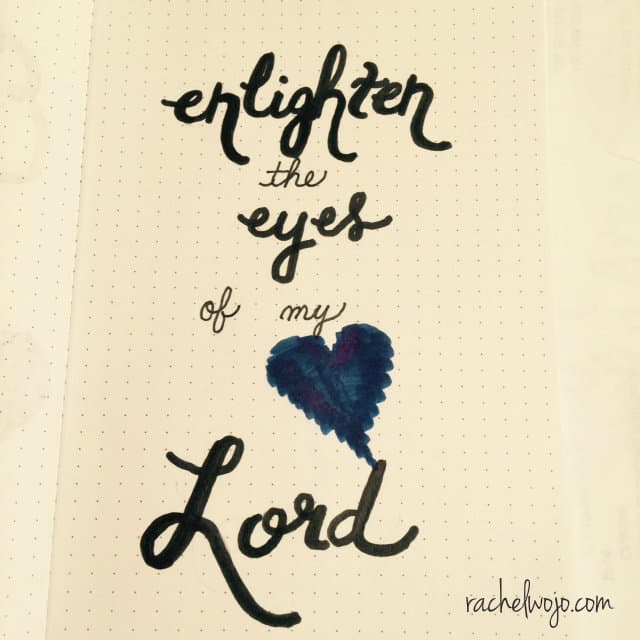 enlighten
the
eyes
of my
Lord
rachelwojo.com